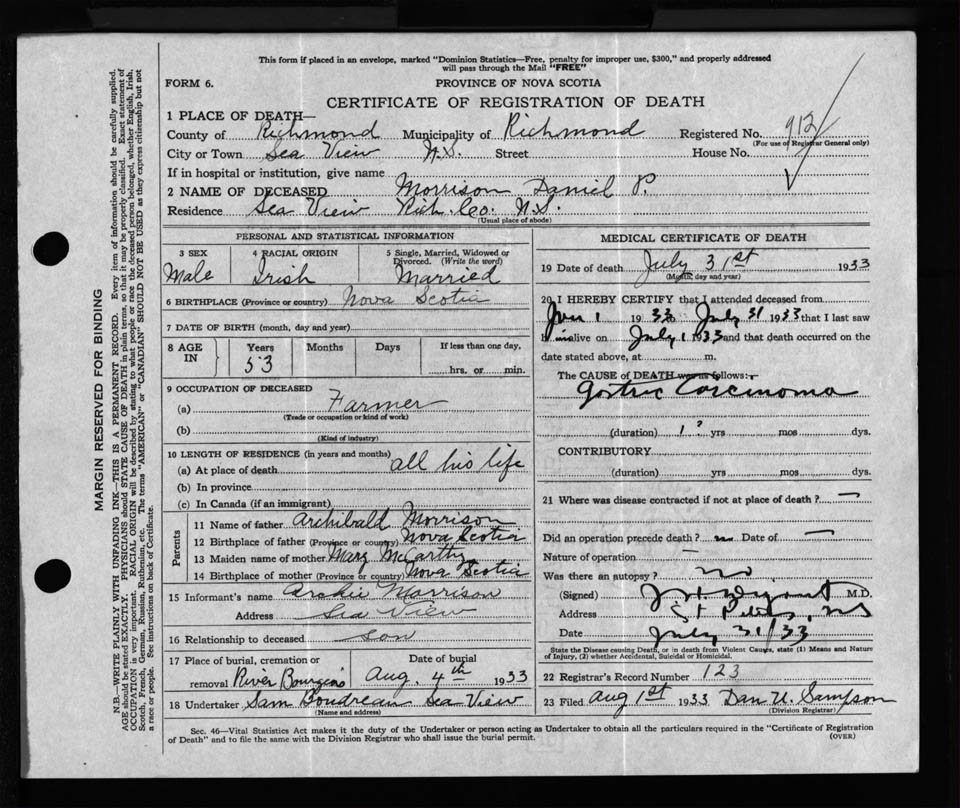 This form if placed in an envelope, marked "Dominion Statistics—Free, penalty for improper use, $300," and properly addressed
will pass through the Mail "FREE"
FORM 6.
PROVINCE OF NOVA SCOTIA
CERTIFICATE OF REGISTRATION OF DEATH
1 PLACE OF DEATH—
County of Richmond Municipality of Richmond Registered No. 912
(For use of Registrar General only)
City or Town Sea View N.S. Street House No.
If in hospital or institution, give name
2 NAME OF DECEASED Morrison Daniel P.
Residence Sea View Rich. Co. N.S.
(Usual place of abode)
PERSONAL AND STATISTICAL INFORMATION
3 SEX 4 RACIAL ORIGIN 5 Single, Married, Widowed or
Divorced. (Write the word)
Male Irish Married
6 BIRTHPLACE (Province or country) Nova Scotia
7 DATE OF BIRTH (month, day and year)
8 AGE IN Years Months Days If less than one day,
53 hrs. or min.
9 OCCUPATION OF DECEASED
(a) Farmer
(Trade or occupation or kind of work)
(b)
(Kind of industry)
10 LENGTH OF RESIDENCE (in years and months)
(a) At place of death all his life
(b) In province
(c) In Canada (if an immigrant)
Parents
11 Name of father Archibald Morrison
12 Birthplace of father (Province or country) Nova Scotia
13 Maiden name of mother Mary McCarthy
14 Birthplace of mother (Province or country) Nova Scotia
15 Informant's name Archie Morrison
Address Sea View
16 Relationship to deceased son
17 Place of burial, cremation or Date of burial
removal River Bourgeois Aug. 4th 1933
18 Undertaker Sam Boudreau Sea View
(Name and address)
MEDICAL CERTIFICATE OF DEATH
19 Date of death July 31st 1933
(Month, day and year)
20 I HEREBY CERTIFY that I attended deceased from
1 1933 to July 31 1933 that I last saw
h im alive on July 1 1933 and that death occurred on the
date stated above, at m.
The CAUSE of DEATH was as follows:
Gastric Carcinoma
(duration) 1? yrs mos dys.
CONTRIBUTORY
(duration) yrs mos dys.
21 Where was disease contracted if not at place of death? —
Did an operation precede death? no Date of —
Nature of operation —
Was there an autopsy? no
(Signed) M.D.
Address St Peters, NS
Date July 31/33
State the Disease causing Death, or in death from Violent Causes, state (1) Means and Nature
of Injury, (2) whether Accidental, Suicidal or Homicidal.
22 Registrar's Record Number 123
23 Filed Aug 1st 1933 Dan U. Sampson
(Division Registrar)
Sec. 46—Vital Statistics Act makes it the duty of the Undertaker or person acting as Undertaker to obtain all the particulars required in the "Certificate of Registration
of Death" and to file the same with the Division Registrar who shall issue the burial permit. (OVER)
MARGIN RESERVED FOR BINDING
N.B.—WRITE PLAINLY WITH UNFADING INK—THIS IS A PERMANENT RECORD. Every item of information should be carefully supplied.
AGE should be stated EXACTLY. PHYSICIANS should STATE CAUSE OF DEATH in plain terms, so that it may be properly classified. Exact statement of
OCCUPATION is very important. RACIAL ORIGIN will be described by stating to what people or race the deceased person belonged, whether English, Irish,
Scotch, French, German, Russian, Ruthenian, etc. The terms "AMERICAN" or "CANADIAN" SHOULD NOT BE USED as they express citizenship but not
a race or people. See instructions on back of Certificate.